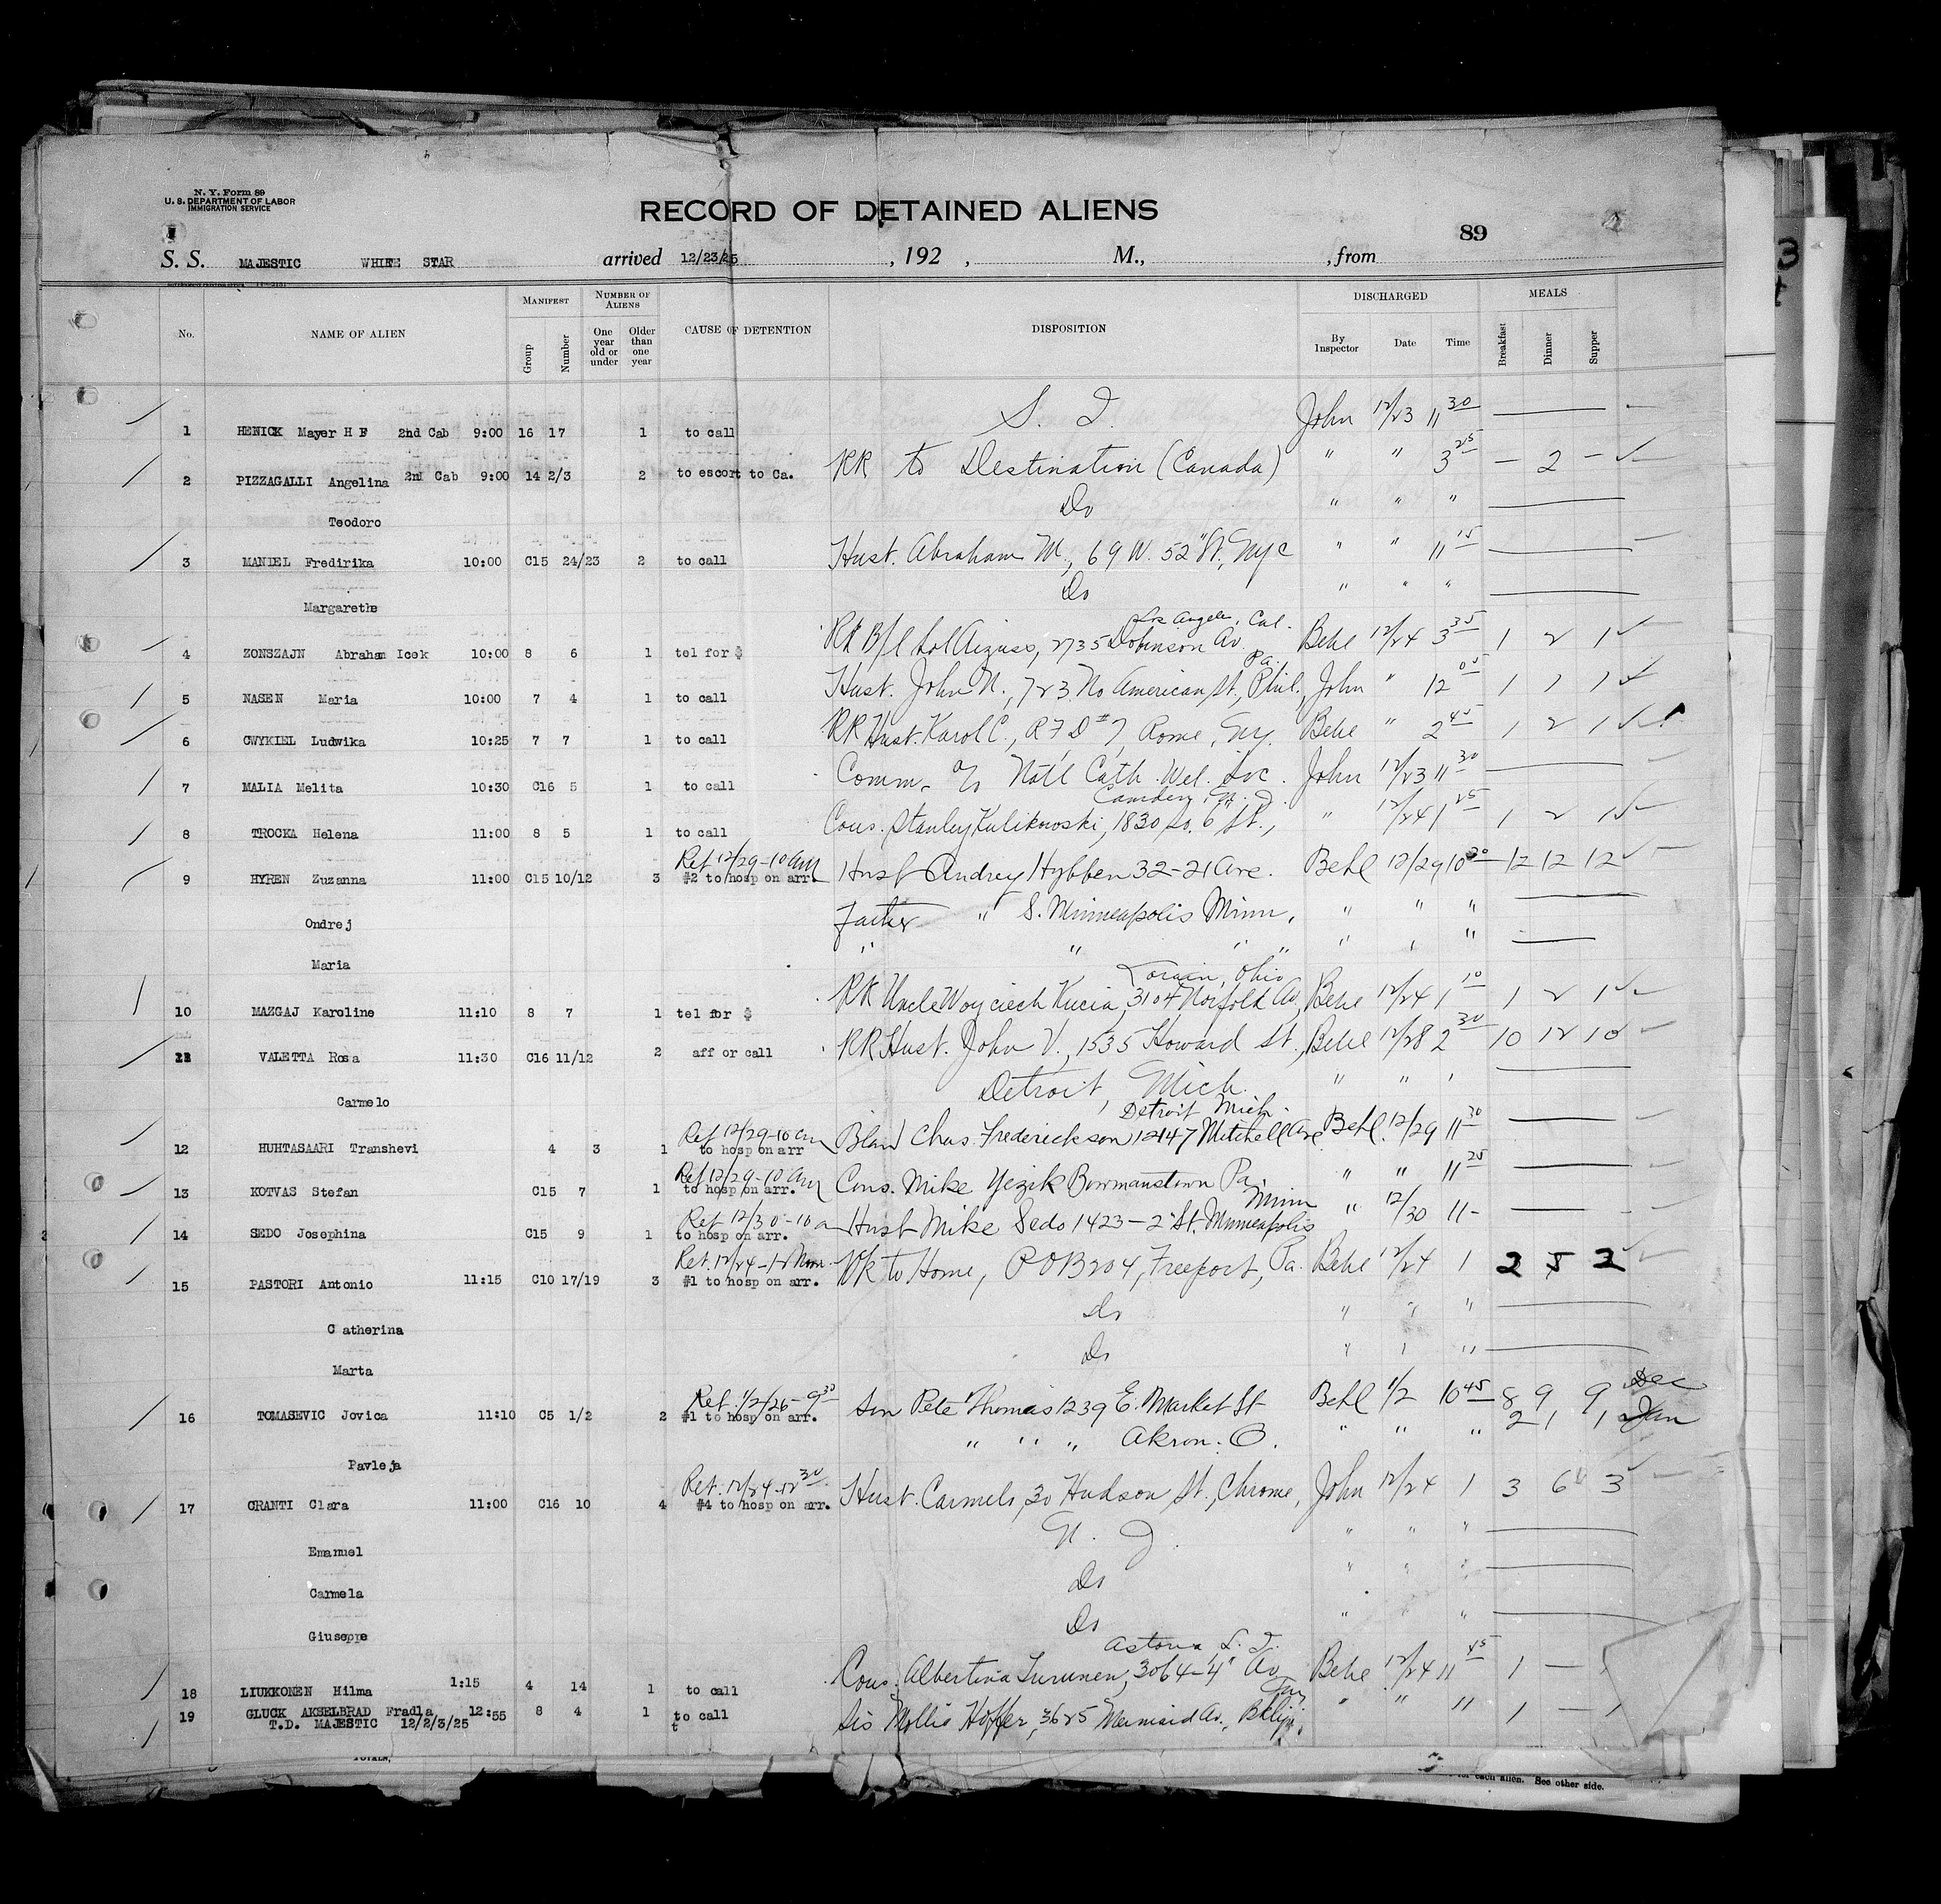 N. Y. Form 89
U. S. DEPARTMENT OF LABOR
IMMIGRATION SERVICE
RECORD OF DETAINED ALIENS
89
S. S. MAJESTIC WHITE STAR arrived 12/23/25 , 192 , M., , from
No. NAME OF ALIEN MANIFEST Group Number NUMBER OF ALIENS One year old or under Older than one year CAUSE OF DETENTION DISPOSITION DISCHARGED By Inspector Date Time MEALS Breakfast Dinner Supper
1 HENICK Mayer H F 2nd Cab 9:00 16 17 1 to call S. I. John 12/23 11 30
2 PIZZAGALLI Angelina 2nd Cab 9:00 14 2/3 2 to escort to Ca. RR to Destination (Canada) " " 3 25 — 2 —
Teodoro Do " " "
3 MANIEL Fredirika 10:00 C15 24/23 2 to call Husb. Abraham M., 69 W. 52" St., Nyc " " 11 15
Margarethe Do " " "
Los Angeles, Cal.
4 ZONSZAJN Abraham Icek 10:00 8 6 1 tel for $ RR B/l Sol Aizuss, 2735 Dobinson Av. Behl 12/24 3 35 1 2 1
Pa.
5 NASEN Maria 10:00 7 4 1 to call Husb. John N., 723 No American St., Phil., John " 12 05 1 1 1
6 CWYKIEL Ludwika 10:25 7 7 1 to call RR Husb. Karol C., R F D #7, Rome, Ny. Behl " 2 45 1 2 1
7 MALIA Melita 10:30 C16 5 1 to call Comm. c/o Nat'l Cath. Wel. Svc. John 12/23 11 30
Camden, N. J.
8 TROCKA Helena 11:00 8 5 1 to call Cous. Stanley Kulikowski, 1830 So. 6" St., " 12/24 1 25 1 2 1
Ret 12/29-10 am
9 HYREN Zuzanna 11:00 C15 10/12 3 #2 to hosp on arr Husb Andrey Hybben 32-21 Ave. Behl 12/29 10 30 12 12 12
Ondrej Father " S. Minneapolis Minn. " " "
Maria " " " " " " "
Lorain, Ohio
10 MAZGAJ Karoline 11:10 8 7 1 tel for $ RR Uncle Woyciech Kucia, 3104 Norfolk Av., Behl 12/24 1 10 1 2 1
11 VALETTA Rosa 11:30 C16 11/12 2 aff or call RR Husb. John V., 1535 Howard St., Behl 12/28 2 30 10 12 10
Carmelo Detroit, Mich. " " "
Ret 12/29-10 am Detroit Mich.
12 HUHTASAARI Transhevi 4 3 1 to hosp on arr Chas. Frederickson 12147 Mitchell Ave Behl. 12/29 11 30
Ret 12/29-10 am
13 KOTVAS Stefan C15 7 1 to hosp on arr. Cons. Mike Yezik Bowmanstown Pa. " " 11 25
Ret 12/30-10 a Minn
14 SEDO Josephina C15 9 1 to hosp on arr. Husb Mike Sedo 1423-2" St. Minneapolis " 12/30 11-
Ret. 12/24-12 Noon
15 PASTORI Antonio 11:15 C10 17/19 3 #1 to hosp on arr. Ok to Home, P O B 204, Freeport, Pa. Behl 12/24 1 2 5 2
Catherina Do " " "
Marta Do " " "
Ret. 1/2/26-9 30 Dec
16 TOMASEVIC Jovica 11:10 C5 1/2 2 #1 to hosp on arr. Son Pete Thomas 1239 E. Market St Behl 1/2 10 45 8 9 9
Pavleja " " " Akron. O. " " " 2 1 1 Jan
Ret. 12/24-12 30
17 CRANTI Clara 11:00 C16 10 4 #4 to hosp on arr. Husb. Carmelo, 30 Hudson St., Chrome, John 12/24 1 3 6 3
Emanuel N. J. " " "
Carmela Do " " "
Giuseppe Do " "
Astoria, L. I.
18 LIUKKONEN Hilma 1:15 4 14 1 to call Cous. Albertina Turunen, 3064-4" Av Behl 12/24 11 45 1 —
Ny
19 GLUCK AKSELBRAD Fradla 12:55 8 4 1 to call Sis Mollie Hoffer, 3625 Mermaid Av., Bklyn, " " 11 1 — 1
T.D. MAJESTIC 12/2/3/25 t
TOTALS,
for each alien. See other side.